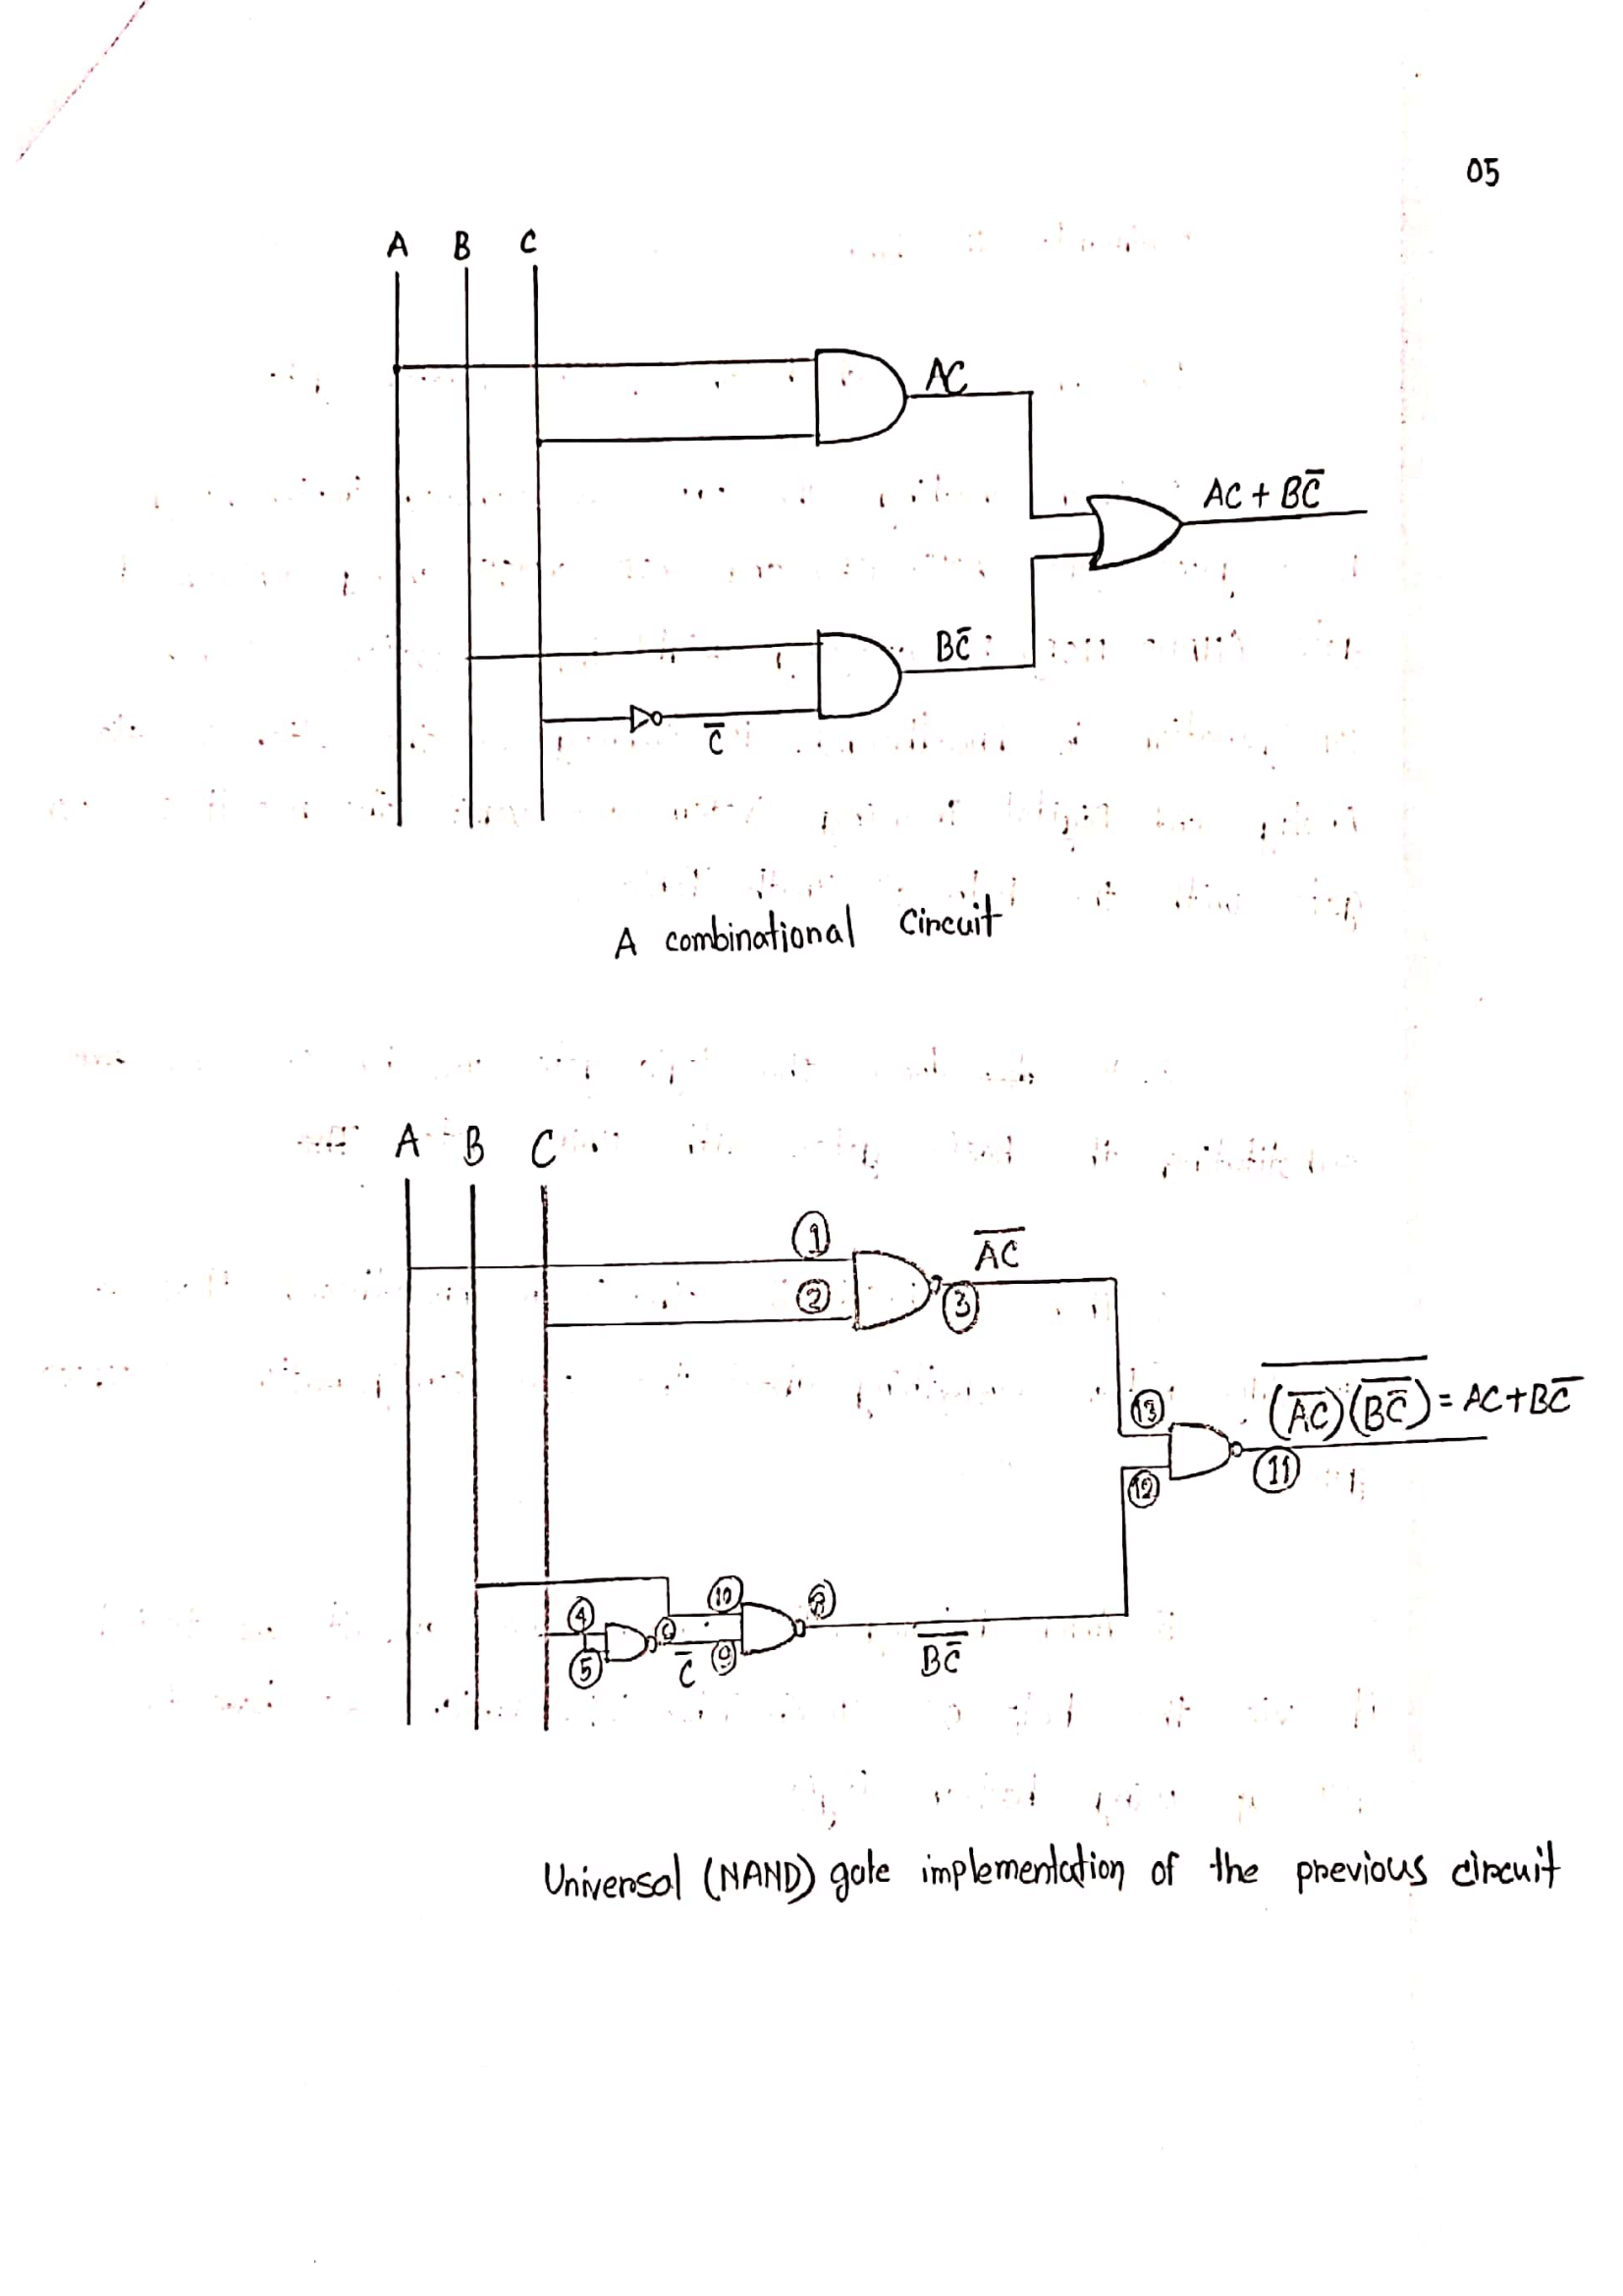 05
A B C
AC
AC + BC̅
BC̅
C̅
A combinational Circuit
A B C
① A̅C̅
② ③
⑬ (A̅C̅)(B̅C̅) = AC+BC̅
⑫ ⑪
④ ⑩ ⑧
⑥
⑤ C̅ ⑨ BC̅
Universal (NAND) gate implementation of the previous circuit